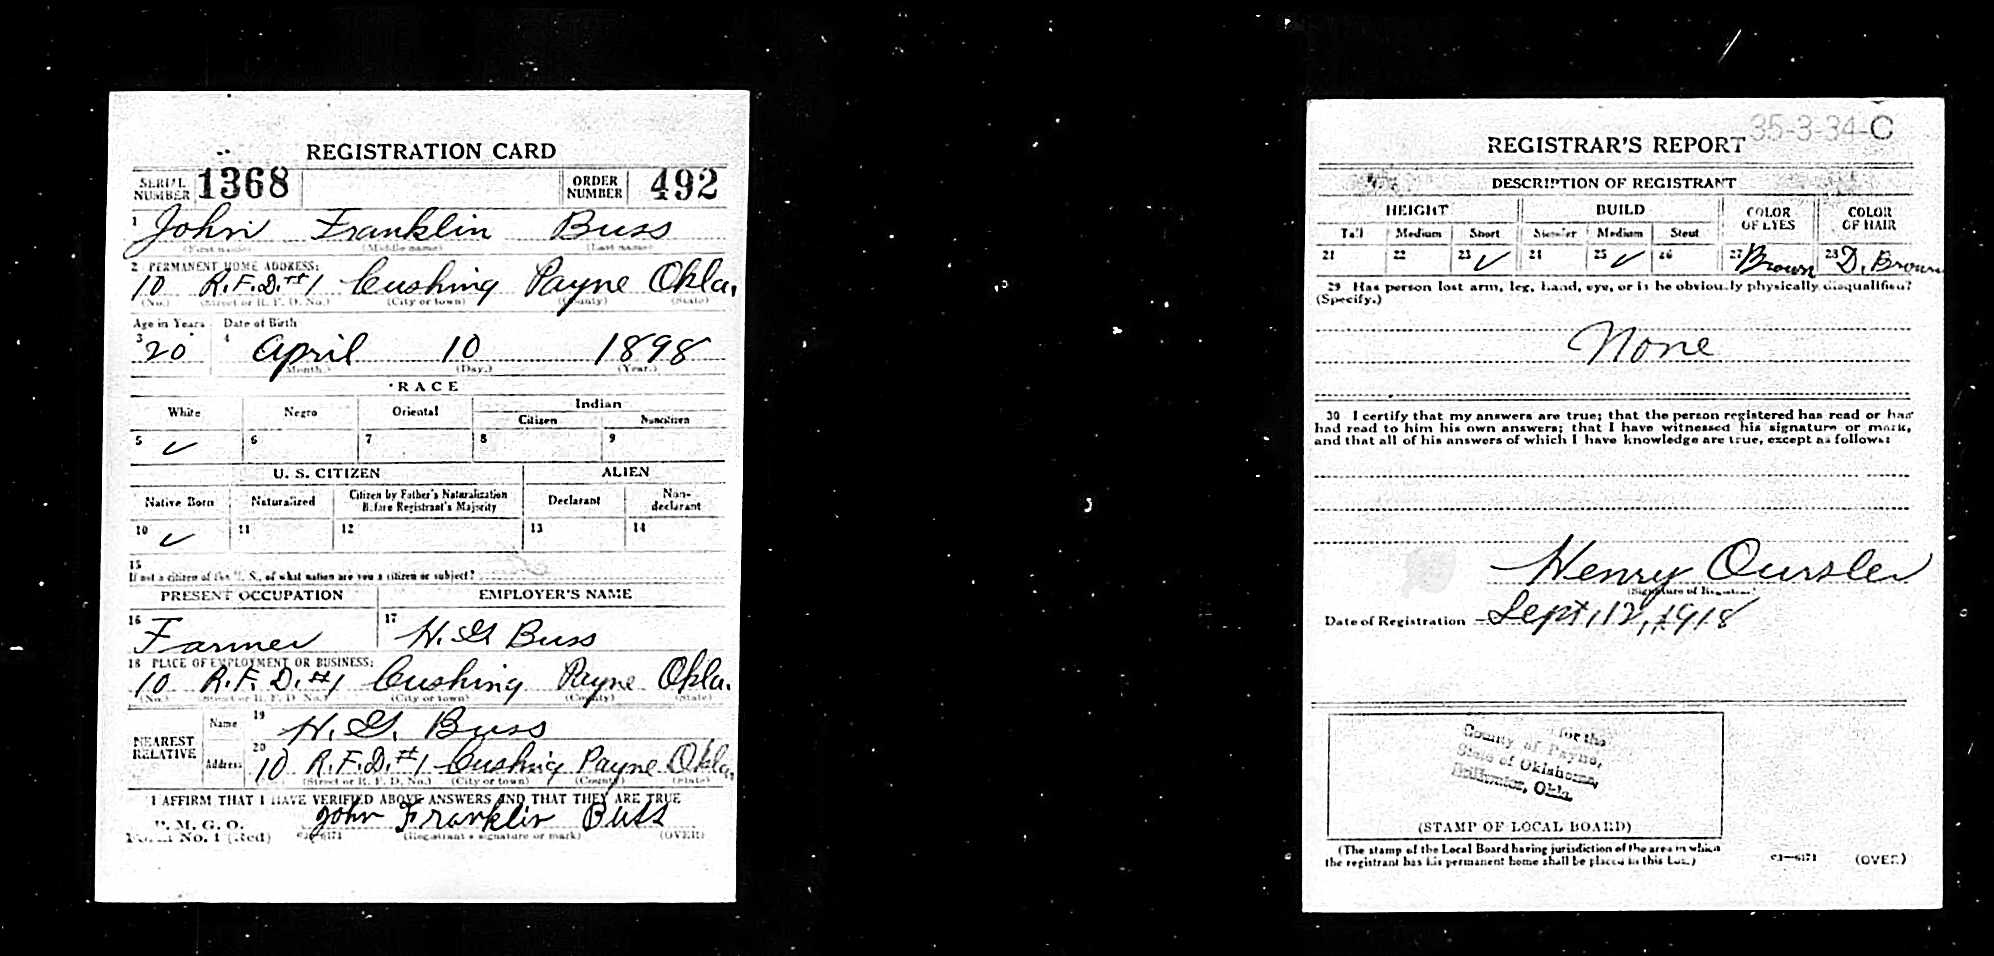 REGISTRATION CARD
SERIAL NUMBER 1368 ORDER NUMBER 492
1 John Franklin Buss
(First name) (Middle name) (Last name)
2 PERMANENT HOME ADDRESS:
10 R.F.D. #1 Cushing Payne Okla.
(No.) (Street or R. F. D. No.) (City or town) (County) (State)
Age in Years Date of Birth
3 20 4 April 10 1898
(Month.) (Day.) (Year.)
RACE
White Negro Oriental Indian
Citizen Noncitizen
5 ✓ 6 7 8 9
U. S. CITIZEN ALIEN
Native Born Naturalized Citizen by Father's Naturalization Before Registrant's Majority Declarant Non-declarant
10 ✓ 11 12 13 14
15
If not a citizen of the U. S., of what nation are you a citizen or subject?
PRESENT OCCUPATION EMPLOYER'S NAME
16 Farmer 17 H. G. Buss
18 PLACE OF EMPLOYMENT OR BUSINESS:
10 R.F.D. #1 Cushing Payne Okla.
(No.) (Street or R. F. D. No.) (City or town) (County) (State)
NEAREST RELATIVE Name 19 H. G. Buss
Address 20 10 R.F.D. #1 Cushing Payne Okla.
(Street or R. F. D. No.) (City or town) (County) (State)
I AFFIRM THAT I HAVE VERIFIED ABOVE ANSWERS AND THAT THEY ARE TRUE
P. M. G. O.
Form No. 1 (Red) John Franklin Buss
(Registrant's signature or mark) (OVER)
35-3-34-C
REGISTRAR'S REPORT
DESCRIPTION OF REGISTRANT
HEIGHT BUILD COLOR OF EYES COLOR OF HAIR
Tall Medium Short Slender Medium Stout
21 22 23 ✓ 24 25 ✓ 26 27 Brown 28 D. Brown
29 Has person lost arm, leg, hand, eye, or is he obviously physically disqualified?
(Specify.)
None
30 I certify that my answers are true; that the person registered has read or has
had read to him his own answers; that I have witnessed his signature or mark,
and that all of his answers of which I have knowledge are true, except as follows:
Henry Oursler
(Signature of Registrar)
Date of Registration Sept, 12, 1918
for the
County of Payne,
State of Oklahoma,
Stillwater, Okla.
(STAMP OF LOCAL BOARD)
(The stamp of the Local Board having jurisdiction of the area in which
the registrant has his permanent home shall be placed in this box.)
03—6171 (OVER)